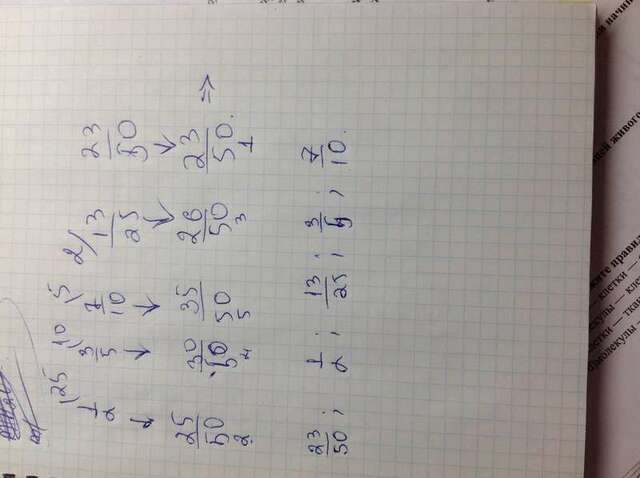 25 10 5 2
1/2 3/5 7/10 13/25 23/50
25/50 30/50 35/50 26/50 23/50. ⇒
2 4 5 3 1
23/50; 1/2; 13/25; 3/5; 7/10.